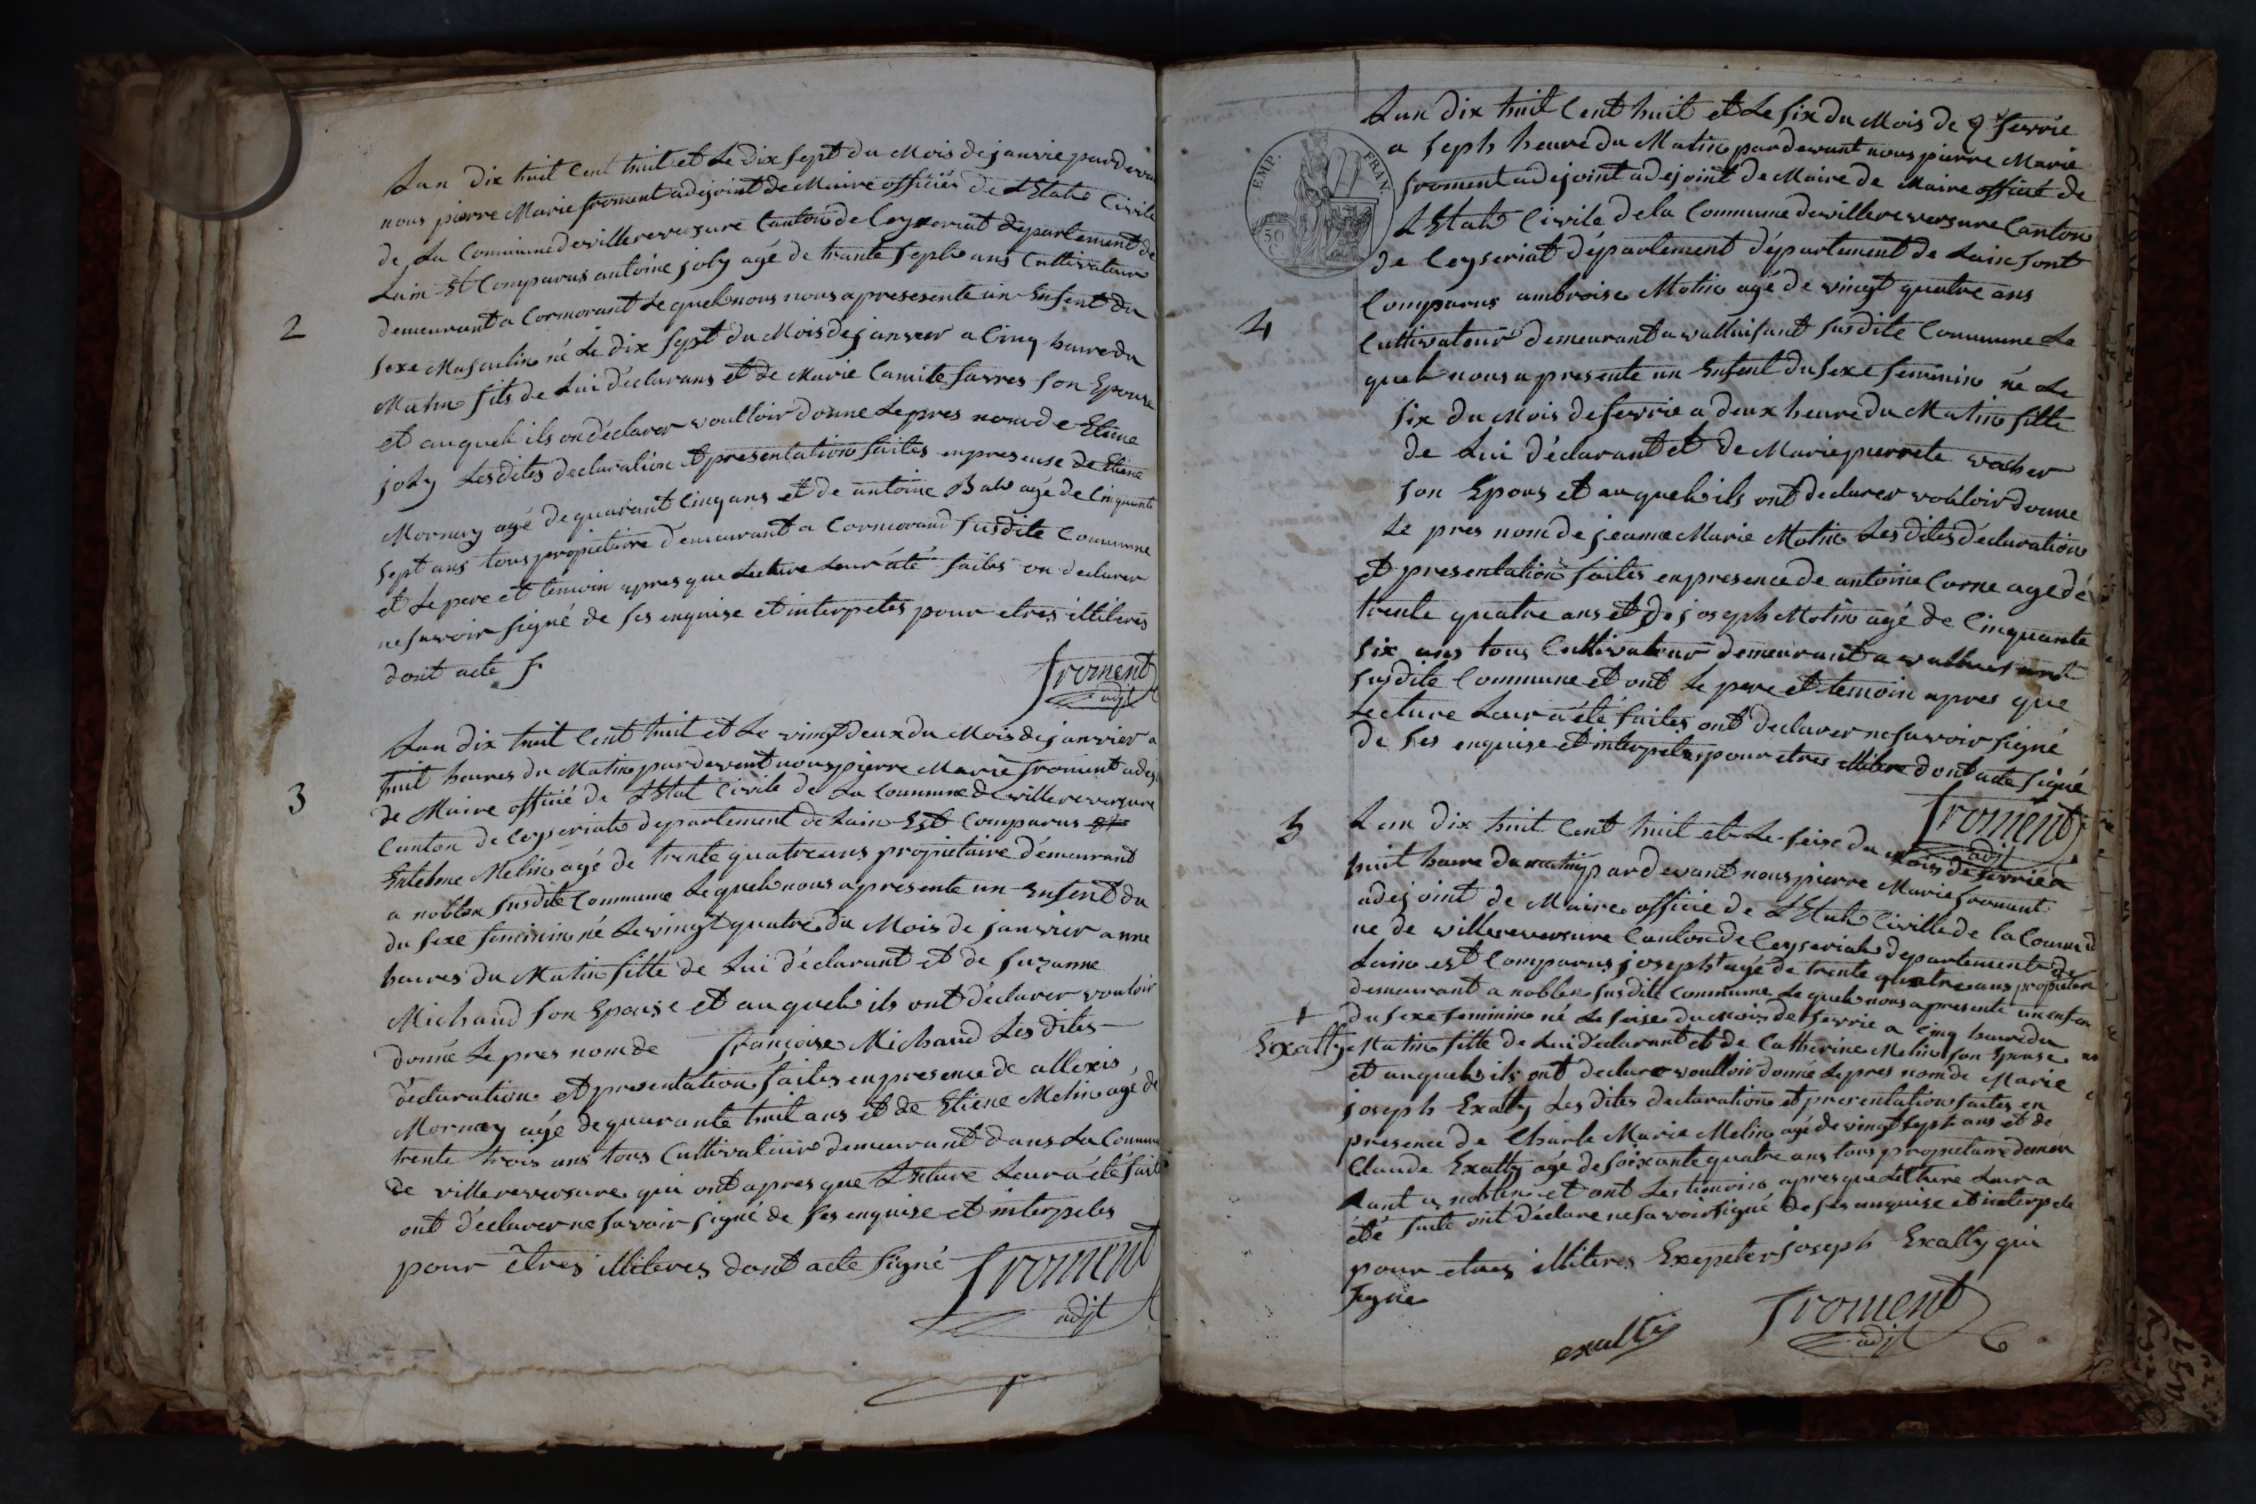 Lan dix huit Cent huit et Le dix sept du Mois de janvie pardevan
nous pierre Marie froment adejoint de Maire officies de L'Etat Civile
de La Commune de villereversure Canton de Ceyzeriat département de
Lain Et Comparus antoine joly agé de trante sept ans Cultivateur
demeurant a Cormorant Le quel nous nous a presesente un Enfent du
2
sexe Masculin né Le dix sept du Mois de janvier a Cinq heure du
Matin fils de Lui déclarans et de Marie Camile favres son Epouse
et auquel ils on déclarer voulloir donne Le pres nom de Etiene
joly Les dites declaration et presentation faites en presense de Etiene
Mornay agé de quarant Cinq ans et de antoine Bal agé de Cinquante
sept ans tous propietaire demeurant a Cormorand susdite Commune
et Le pere et temoin apres que Lecture Leur a été faites on declarer
ne savoir signé de ses enquise et interpeles pour etres illiteres
dont acte f.
froment
adjt
Lan dix huit Cent huit et Le vingt deux du Mois de janvier a
huit heures du Matin pardevent nous pierre Marie froment adej
3
de Maire officié de L'Etat Civile de La Commune de villereversure
Canton de Ceyseriat departement de Lain Est Comparus
Entelme Melin agé de trente quatre ans propietaire demeurant
a noblen susdite Commune Le quel nous a presente un Enfent du
du sexe feminin né Le vingt quatre du Mois de janvier a nne
heures du Matin fille de Lui déclarant et de suzanne
Michaud son Epouse et auquel ils ont déclarer vouloir
donné Le pres nom de françoise Michaud Les dites
déclaration et presentation faites en presence de allexis
Mornay agé de quarante huit ans et de Etiene Melin agé de
trente trois ans tous Cultivateur demeurant dans La Commune
de villereversure qui ont apres que Lecture Leur a été fait
ont déclarer ne savoir signé de ses enquise et interpeles
pour êtres illiteres dont acte signé
froment
adjt
Lan dix huit Cent huit et Le six du Mois de fevrie
a seph heure du Matin pardevant nous pierre Marie
EMP. FRAN.
froment adejoint adejoint de Maire de Maire officié de
L'Etat Civile de la Commune de villereversure Canton
50
de Ceyseriat département département de Lain sont
Comparus ambroise Motin agé de vingt quatre ans
4
Cultivateur demeurant a valluisant susdite Commune Le
quel nous a presente un Enfent du sexe feminin né Le
six du Mois de fevrie a deux heure du Matin fille
de Lui déclarant et de Marie pierrete vacher
son Epous et auquel ils ont declarer voúloir donne
Le pres nom de jeanne Marie Motin Les dites déclaration
et presentation faites en presence de antoine Corne age dé
trente quatre ans et de joseph Motin agé de Cinquante
six ans tous Cultivateur demeurant a
susdite Commune et ont Le pere et temoin apres que
Lecture Leur a été faites ont declarer ne savoir signé
de ses enquise et interpeles pour etres illitere dont acte signé
froment
adjt
5
Lan dix huit Cent huit et Le seise du Mois de fevrie a
huit heure du matin pardevant nous pierre Marie froment
adejoint de Maire officié de L'Etat Civille de la Commu
ne de villereversure Canton de Ceyseriat departement de
Lain est Comparus joseph agé de trente quatre ans propietaire
demeurant a noblen susdite Commune Le quel nous a presente un enfen
du sexe feminin né Le seise du Mois de fevrie a Cinq heure du
Exally
Matin fille de Lui déclarant et de Catherine Melin son Epouse
et auquel ils ont declare voulloir donné Le pres nom de Marie
joseph Exally Les dites declaration et presentation faites en
presence de Charle Marie Melin agé de vingt seph ans et de
Claude Exally agé de soixante quatre ans tous propietaire demeu
rant a noblen et ont Les temoins apres que Lecture Leur a
été faite ont déclare ne savoir signé de ses enquise et interpele
pour etres illiteres Exepeter joseph Exally qui
signe
exally
froment
adjt